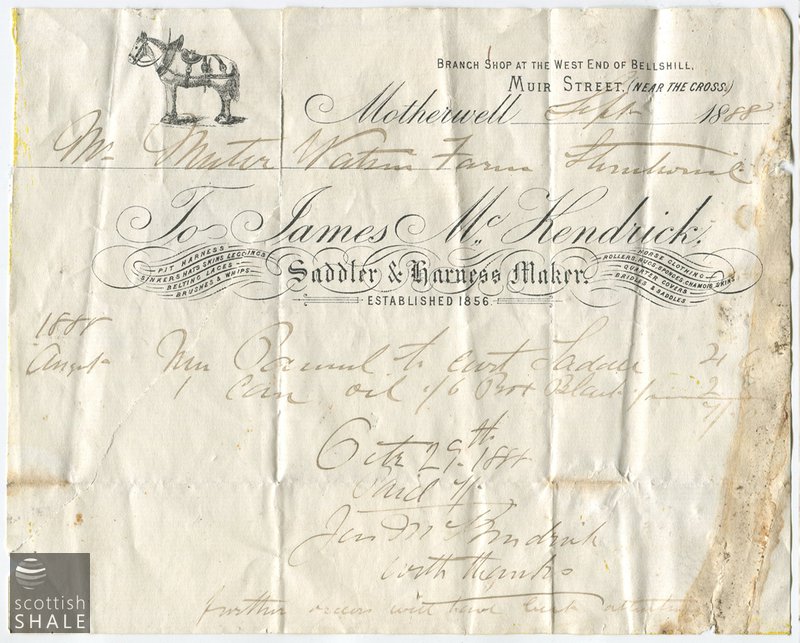 BRANCH SHOP AT THE WEST END OF BELLSHILL,
MUIR STREET, (NEAR THE CROSS.)
Motherwell Sept 1888
Mr Muter Watson Farm
To James Mc. Kendrick,
PIT HARNESS
SINKERS HATS SKINS LEGGINGS
BELTING LACES
BRUSHES & WHIPS
Saddler & Harness Maker.
HORSE CLOTHING
ROLLERS RUGS SPONGES CHAMOIS SKINS
QUARTER COVERS
BRIDLES & SADDLES
ESTABLISHED 1856.
1888
August New to cart Saddle
1 Can oil 1/6 Box Black
29th 1888
Paid
Jas McKendrick
with thanks
further orders will have best attention
scottish
SHALE